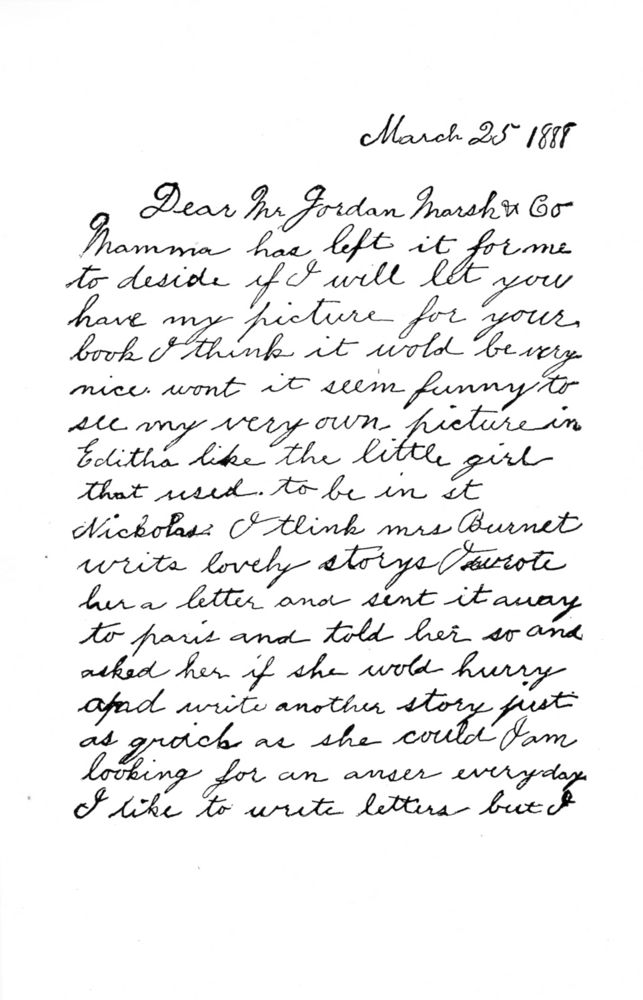 March 25 1888
Dear Mr Jordan Marsh & Co
Mamma has left it for me
to deside if I will let you
have my picture for your
book I think it wold be very
nice. wont it seem funny to
see my very own picture in
Editha like the little girl
that used. to be in st
Nickolas. I think mrs Burnet
writs lovely storys I wrote
her a letter and sent it away
to paris and told her so and
asked her if she wold hurry
and write another story just
as as she could I am
looking for an anser everyday
I like to write letters but I